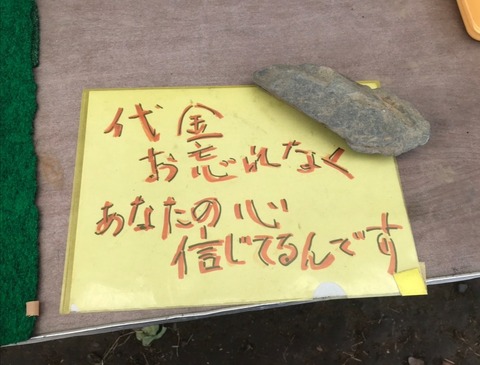 代金
お忘れなく
あなたの心
信じてるんです